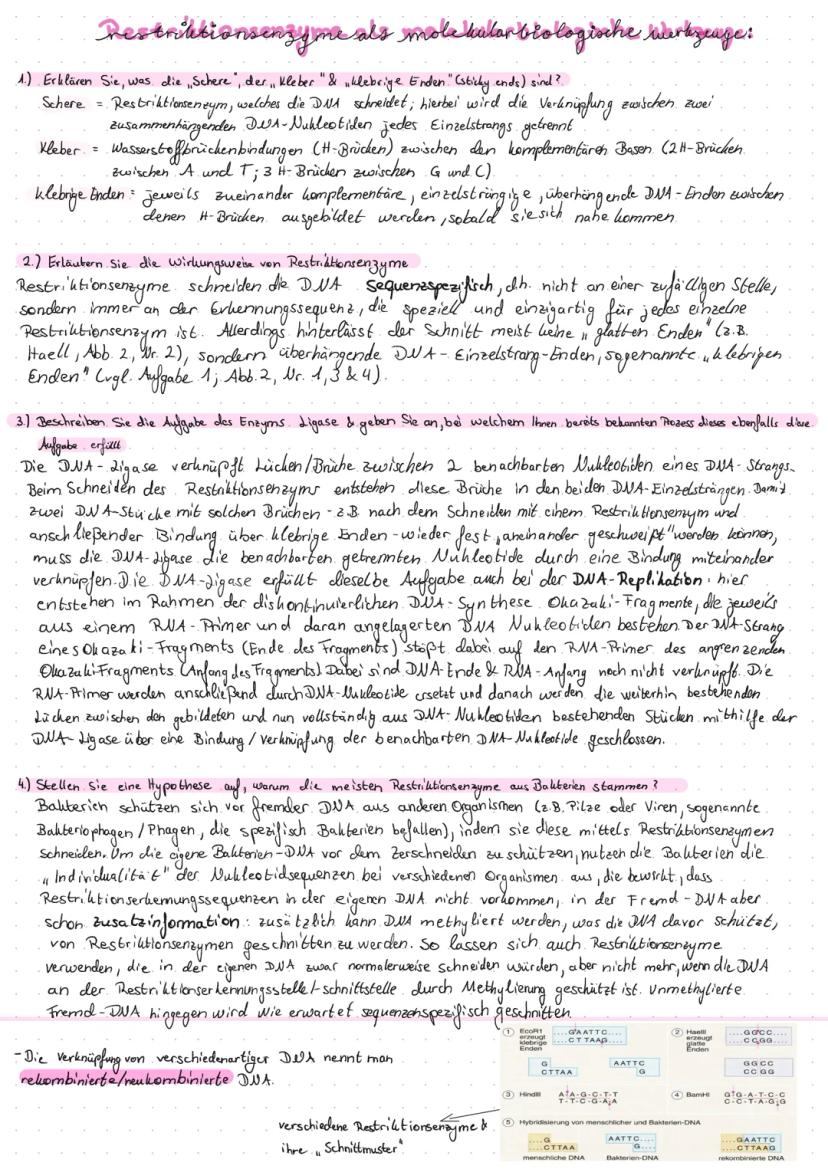 Restriktionsenzyme als molekularbiologische Werkzeuge:
1.) Erklären Sie, was die „Schere", der „Kleber" & „klebrige Enden" (sticky ends) sind?
Schere = Restriktionsenzym, welches die DNA schneidet; hierbei wird die Verknüpfung zwischen zwei
zusammenhängenden DNA-Nukleotiden jedes Einzelstrangs getrennt
Kleber = Wasserstoffbrückenbindungen (H-Brücken) zwischen den komplementären Basen (2 H-Brücken
zwischen A und T; 3 H-Brücken zwischen G und C)
Klebrige Enden = jeweils zueinander komplementäre, einzelsträngige, überhängende DNA-Enden zwischen
denen H-Brücken ausgebildet werden, sobald sie sich nahe kommen
2.) Erläutern Sie die Wirkungsweise von Restriktionsenzyme
Restriktionsenzyme schneiden die DNA sequenzspezifisch, d.h. nicht an einer zufälligen Stelle,
sondern immer an der Erkennungssequenz, die speziell und einzigartig für jedes einzelne
Restriktionsenzym ist. Allerdings hinterlässt der Schnitt meist keine „glatten Enden" (z.B.
HaeII, Abb. 2, Nr. 2), sondern überhängende DNA-Einzelstrang-Enden, sogenannte „klebrigen
Enden" (vgl. Aufgabe 1; Abb. 2, Nr. 1, 3 & 4).
3.) Beschreiben Sie die Aufgabe des Enzyms Ligase & geben Sie an, bei welchem Ihnen bereits bekannten Prozess dieses ebenfalls diese
Aufgabe erfüllt
Die DNA-Ligase verknüpft Lücken/Brüche zwischen 2 benachbarten Nukleotiden eines DNA-Strangs.
Beim Schneiden des Restriktionsenzyms entstehen diese Brüche in den beiden DNA-Einzelsträngen. Damit
zwei DNA-Stücke mit solchen Brüchen - z.B. nach dem Schneiden mit einem Restriktionsenzym und
anschließender Bindung über klebrige Enden - wieder fest „aneinander geschweißt" werden können,
muss die DNA-Ligase die benachbarten getrennten Nukleotide durch eine Bindung miteinander
verknüpfen. Die DNA-Ligase erfüllt dieselbe Aufgabe auch bei der DNA-Replikation: hier
entstehen im Rahmen der diskontinuierlichen DNA-Synthese Okazaki-Fragmente, die jeweils
aus einem RNA-Primer und daran angelagerten DNA Nukleotiden bestehen. Der DNA-Strang
eines Okazaki-Fragments (Ende des Fragments) stößt dabei auf den RNA-Primer des angrenzenden
Okazaki-Fragments (Anfang des Fragments). Dabei sind DNA-Ende & RNA-Anfang noch nicht verknüpft. Die
RNA-Primer werden anschließend durch DNA-Nukleotide ersetzt und danach werden die weiterhin bestehenden
Lücken zwischen den gebildeten und nun vollständig aus DNA-Nukleotiden bestehenden Stücken mithilfe der
DNA-Ligase über eine Bindung/Verknüpfung der benachbarten DNA-Nukleotide geschlossen.
4.) Stellen Sie eine Hypothese auf, warum die meisten Restriktionsenzyme aus Bakterien stammen?
Bakterien schützen sich vor fremder DNA aus anderen Organismen (z.B. Pilze oder Viren, sogenannte
Bakteriophagen/Phagen, die spezifisch Bakterien befallen), indem sie diese mittels Restriktionsenzymen
schneiden. Um die eigene Bakterien-DNA vor dem Zerschneiden zu schützen, nutzen die Bakterien die
„Individualität" der Nukleotidsequenzen bei verschiedenen Organismen aus, die bewirkt, dass
Restriktionserkennungssequenzen in der eigenen DNA nicht vorkommen, in der Fremd-DNA aber
schon. Zusatzinformation: zusätzlich kann DNA methyliert werden, was die DNA davor schützt,
von Restriktionsenzymen geschnitten zu werden. So lassen sich auch Restriktionsenzyme
verwenden, die in der eigenen DNA zwar normalerweise schneiden würden, aber nicht mehr, wenn die DNA
an der Restriktionserkennungsstelle/-schnittstelle durch Methylierung geschützt ist. Unmethylierte
Fremd-DNA hingegen wird wie erwartet sequenzenspezifisch geschnitten.
- Die Verknüpfung von verschiedenartiger DNA nennt man
rekombinierte/neukombinierte DNA.
verschiedene Restriktionsenzyme &
ihre „Schnittmuster"
1 EcoR1 erzeugt klebrige Enden
....GAATTC....
....CTTAAG....
G AATTC
CTTAA G
2 HaeIII erzeugt glatte Enden
....GGCC....
....CCGG....
GG CC
CC GG
3 HindIII
A-A-G-C-T-T
T-T-C-G-A-A
4 BamHI
G-G-A-T-C-C
C-C-T-A-G-G
5 Hybridisierung von menschlicher und Bakterien-DNA
....G AATTC.... ....GAATTC
....CTTAA G.... ....CTTAAG
menschliche DNA Bakterien-DNA rekombinierte DNA